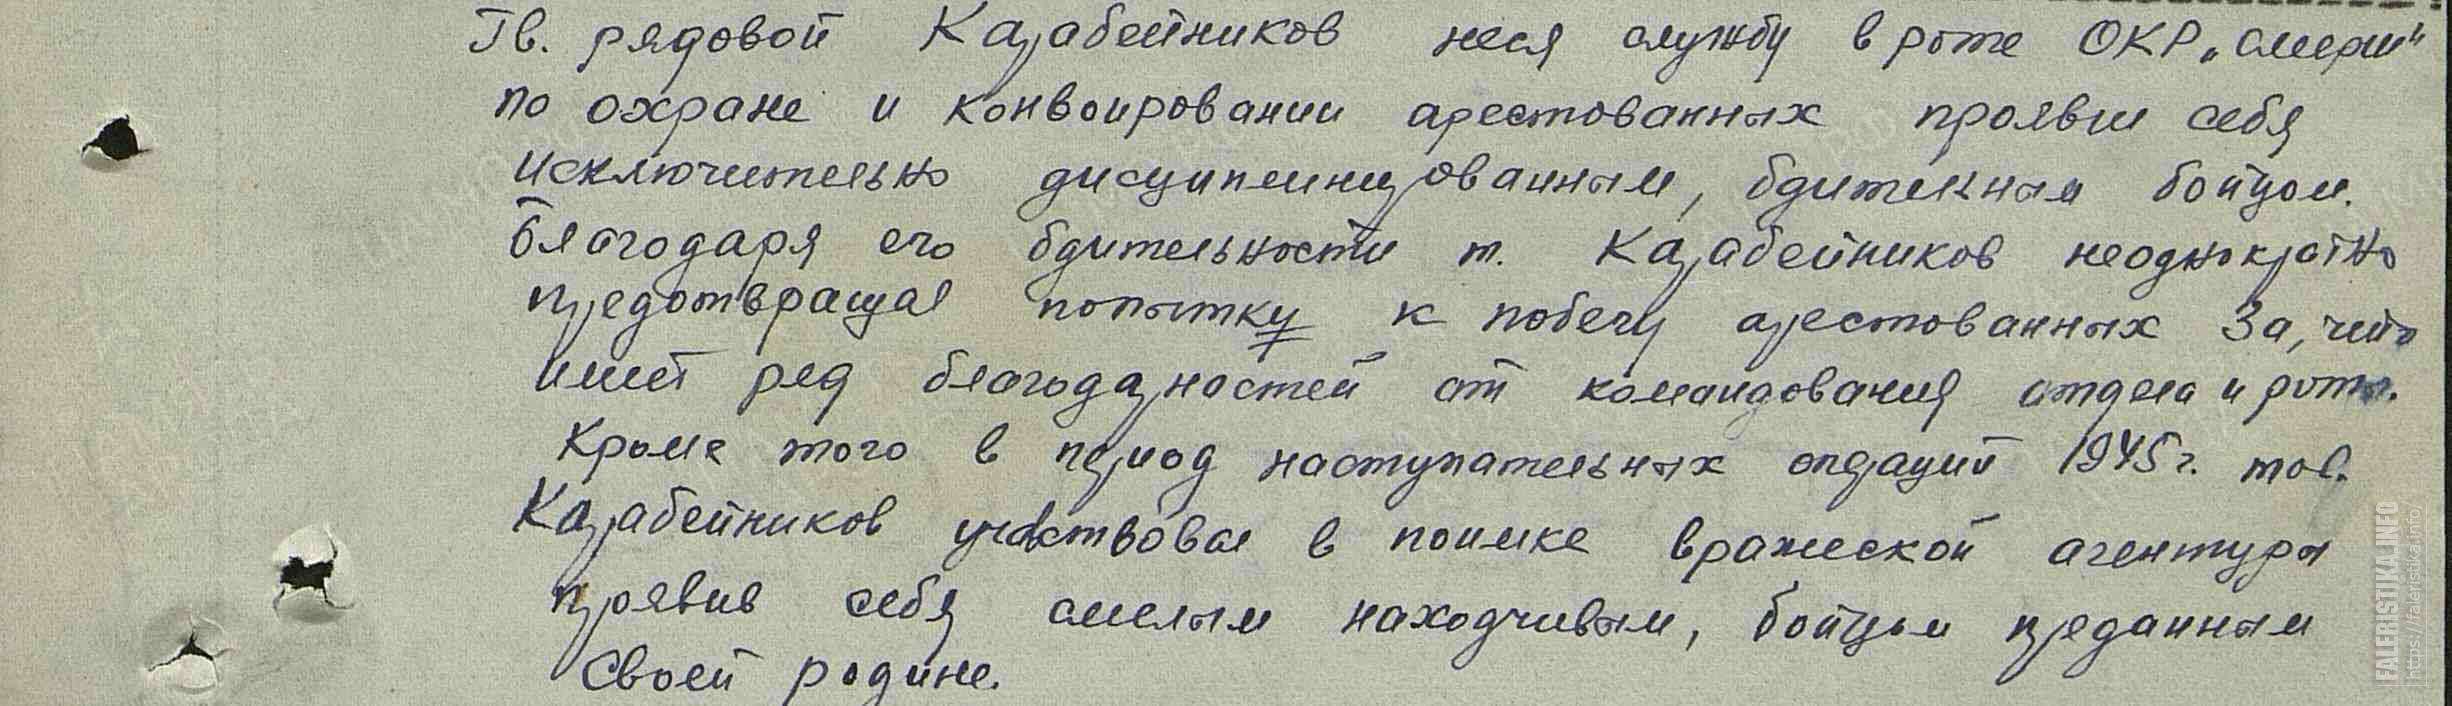 Гв. рядовой Карабейников неся службу в роте ОКР „Смерш"
по охране и конвоировании арестованных проявил себя
исключительно дисциплинированным, бдительным бойцом.
Благодаря его бдительности т. Карабейников неоднократно
предотвращал попытку к побегу арестованных За, что
имеет ряд благодарностей от командования отдела и роты.
Кроме того в период наступательных операций 1945 г. тов.
Карабейников участвовал в поимке вражеской агентуры
проявив себя смелым находчивым, бойцом преданным
своей родине.
FALERISTIKA.INFO
https://faleristika.info/